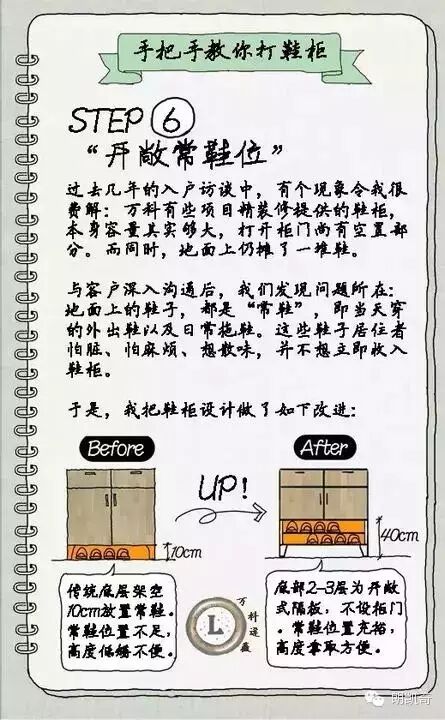 手把手教你打鞋柜
STEP ⑥
“开敞常鞋位”
过去几年的入户访谈中，有个现象令我很
费解：万科有些项目精装修提供的鞋柜，
本身容量其实够大，打开柜门尚有空置部
分。而同时，地面上仍摊了一堆鞋。
与客户深入沟通后，我们发现问题所在：
地面上的鞋子，都是“常鞋”，即当天穿
的外出鞋以及日常拖鞋。这些鞋子居住者
怕脏、怕麻烦、想散味，并不想立即收入
鞋柜。
于是，我把鞋柜设计做了如下改进：
Before
After
UP!
10cm
40cm
传统底层架空
10cm放置常鞋。
常鞋位置不足，
高度低矮不便。
L
底部2-3层为开敞
式隔板，不设柜门
。常鞋位置充裕，
高度拿取方便。
明凯奇